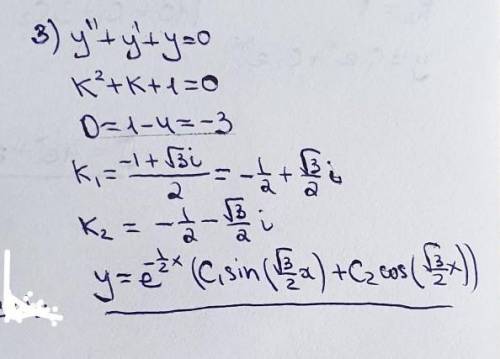 3) y'' + y' + y = 0
K² + K + 1 = 0
D = 1 - 4 = -3
K₁ = (-1 + √3i)/2 = -1/2 + √3/2 i
K₂ = -1/2 - √3/2 i
y = e^(-1/2 x) (C₁ sin(√3/2 x) + C₂ cos(√3/2 x))